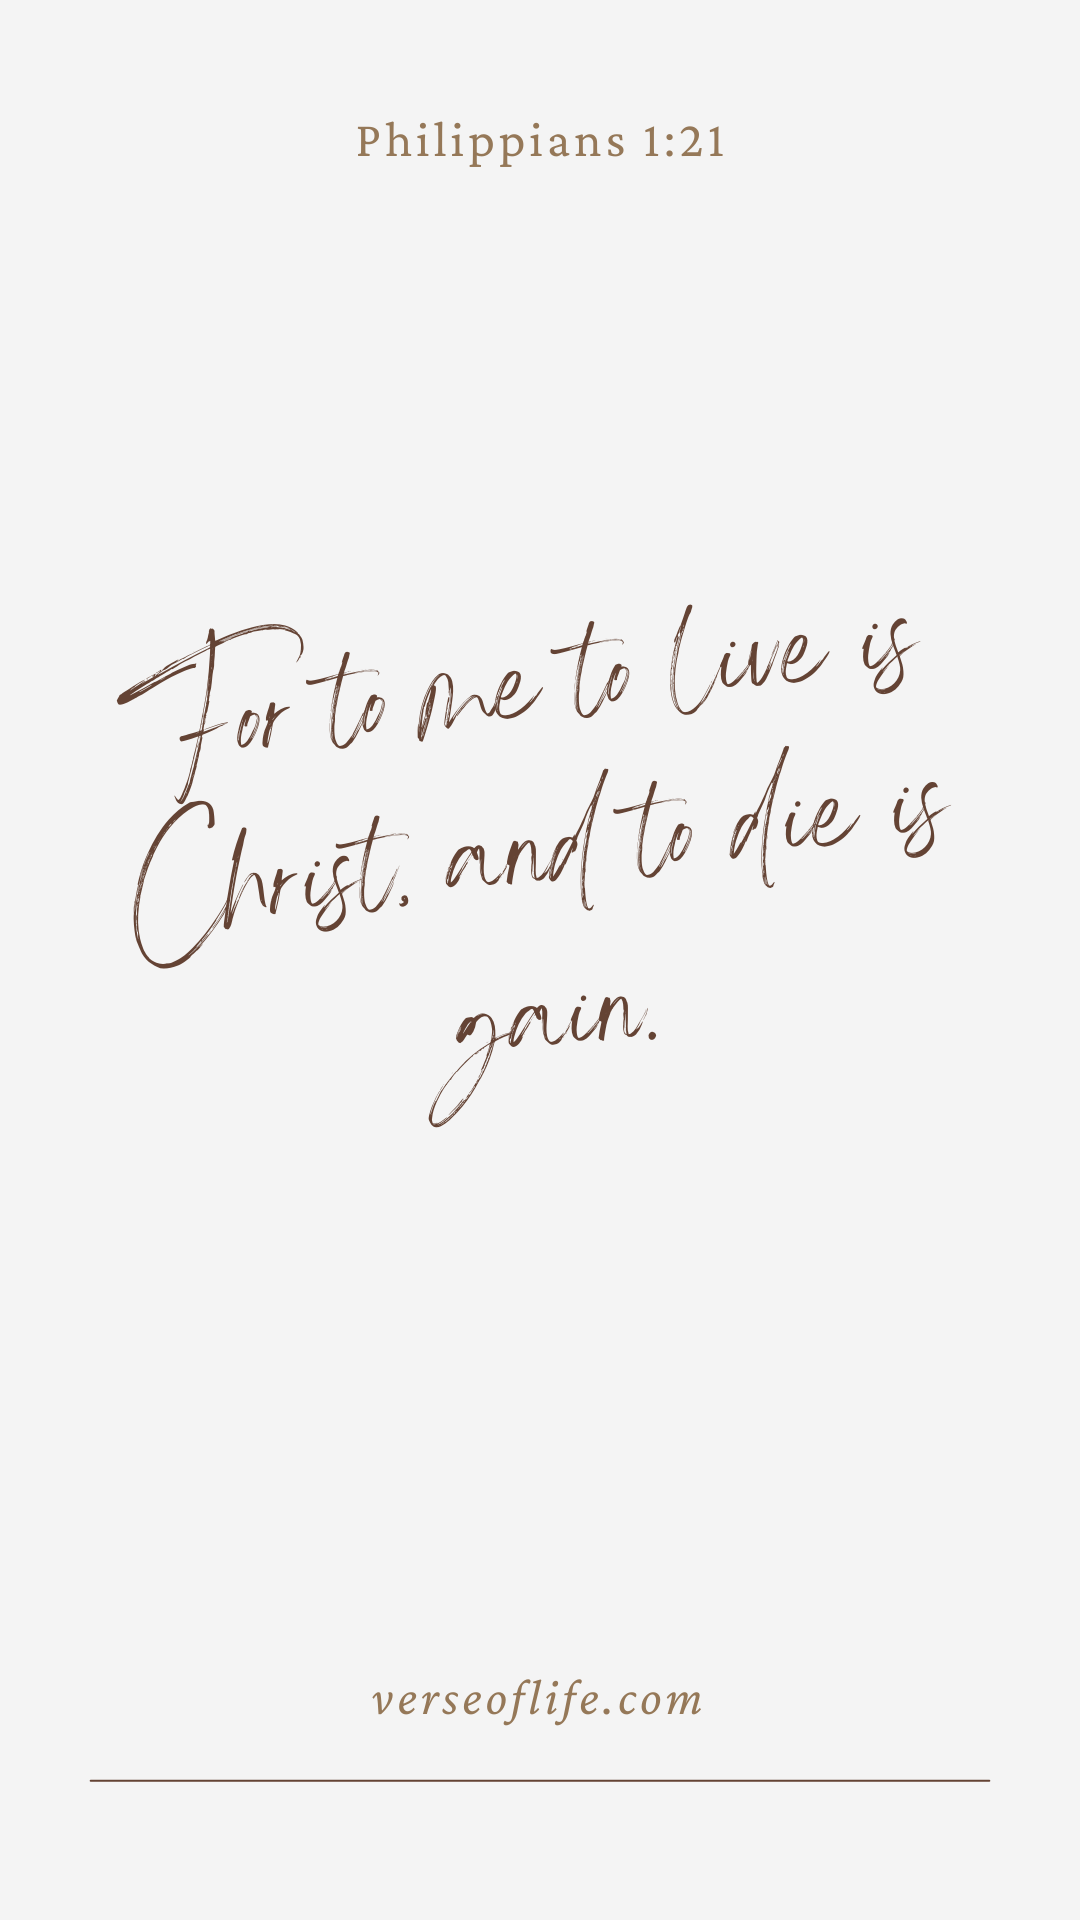 Philippians 1:21
For to me to live is
Christ, and to die is
gain.
verseoflife.com